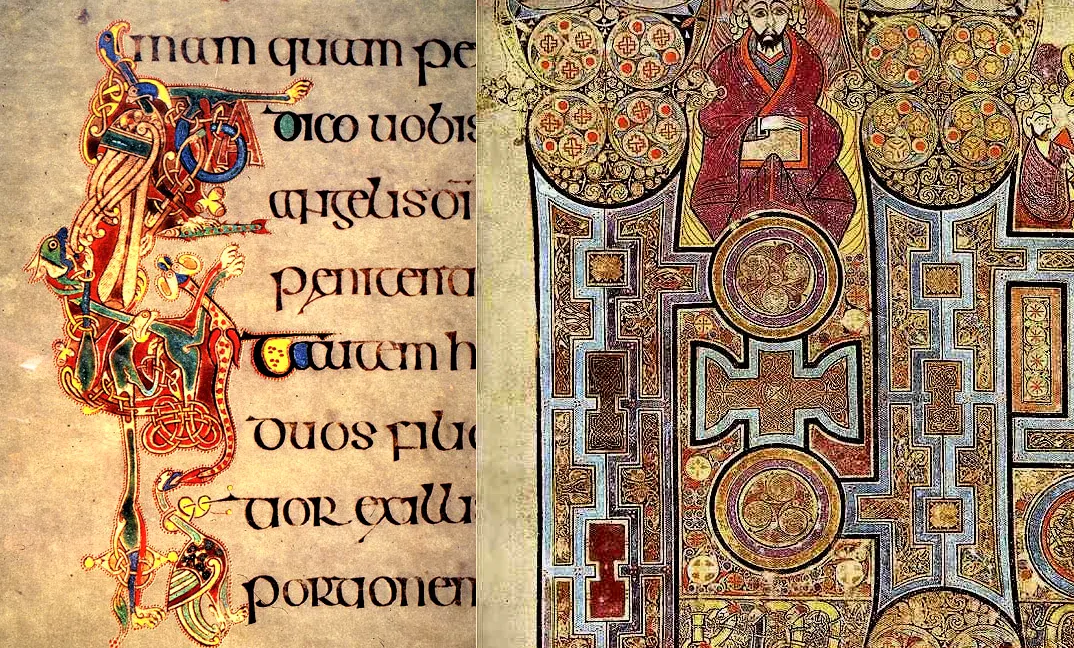 mam quam pe
dico uobis
angelis di
penitentia
autem h
duos filio
tior exillis
portionem